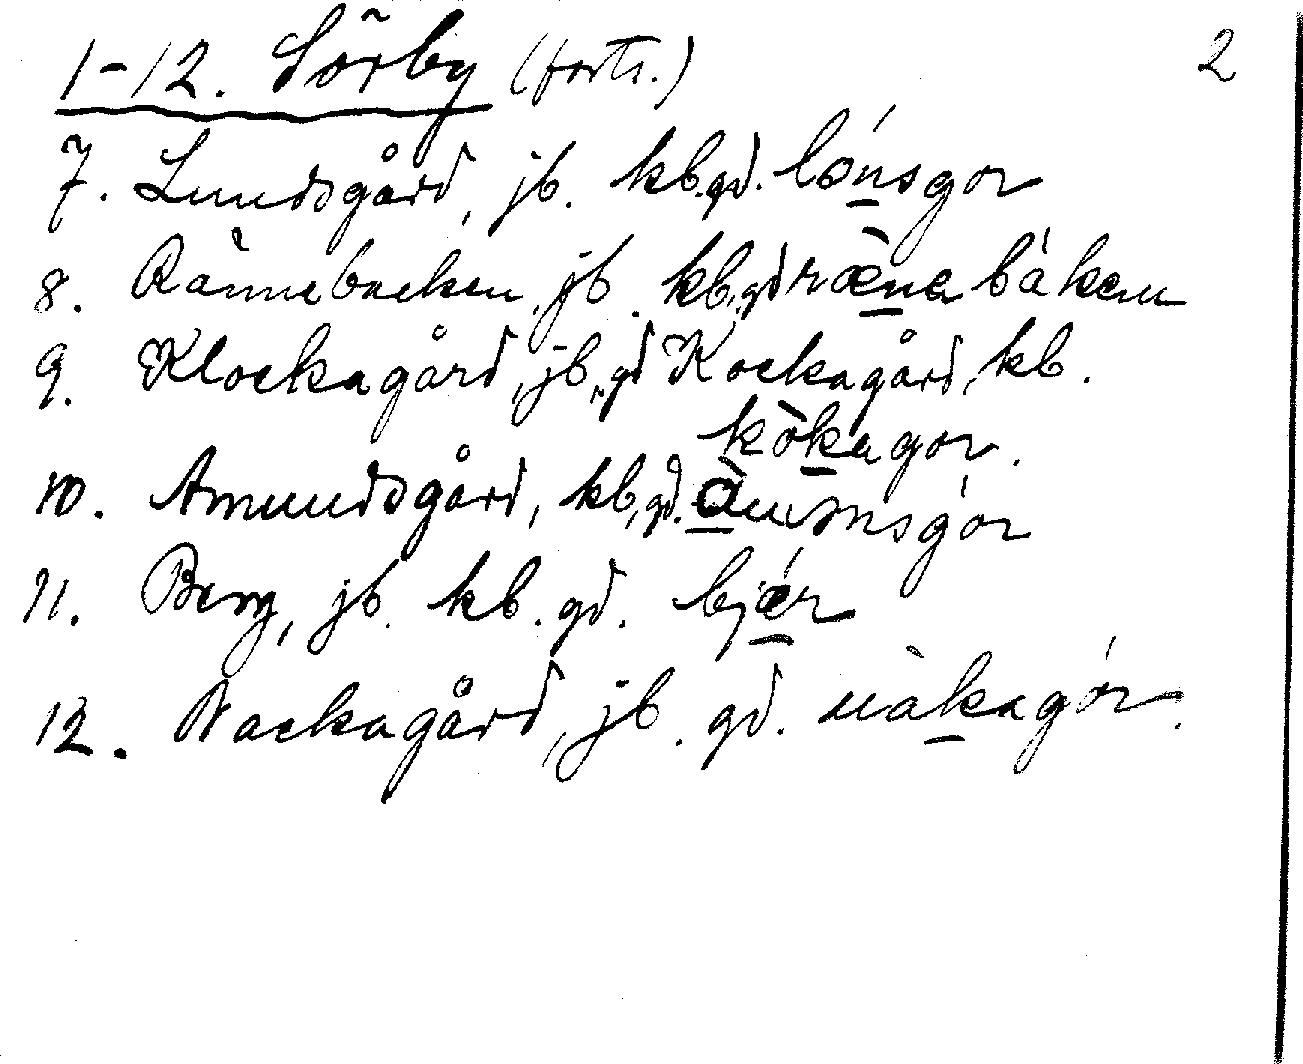 1-12. Sörby (forts.) 2
7. Lundsgård, jb. kb. gd. lónsgor
8. Rännebacken, jb. kb. gd ræ̀nabákem
9. Klockagård, jb, gd Kockagård, kb.
kòkagor.
10. Amundsgård, kb, gd.
11. Berg, jb. kb. gd. bjǽr
12. Nackagård, jb. gd. nàkagór.